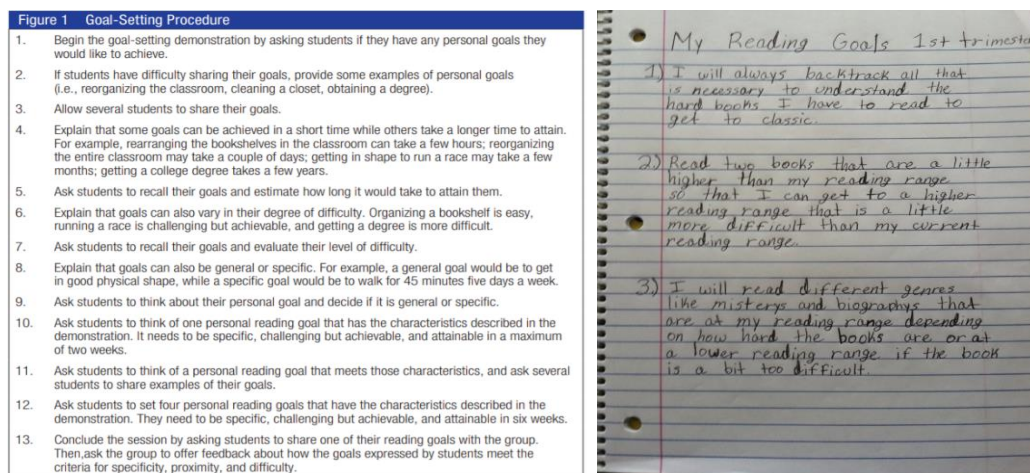 Figure 1 Goal-Setting Procedure
1. Begin the goal-setting demonstration by asking students if they have any personal goals they
would like to achieve.
2. If students have difficulty sharing their goals, provide some examples of personal goals
(i.e., reorganizing the classroom, cleaning a closet, obtaining a degree).
3. Allow several students to share their goals.
4. Explain that some goals can be achieved in a short time while others take a longer time to attain.
For example, rearranging the bookshelves in the classroom can take a few hours; reorganizing
the entire classroom may take a couple of days; getting in shape to run a race may take a few
months; getting a college degree takes a few years.
5. Ask students to recall their goals and estimate how long it would take to attain them.
6. Explain that goals can also vary in their degree of difficulty. Organizing a bookshelf is easy,
running a race is challenging but achievable, and getting a degree is more difficult.
7. Ask students to recall their goals and evaluate their level of difficulty.
8. Explain that goals can also be general or specific. For example, a general goal would be to get
in good physical shape, while a specific goal would be to walk for 45 minutes five days a week.
9. Ask students to think about their personal goal and decide if it is general or specific.
10. Ask students to think of one personal reading goal that has the characteristics described in the
demonstration. It needs to be specific, challenging but achievable, and attainable in a maximum
of two weeks.
11. Ask students to think of a personal reading goal that meets those characteristics, and ask several
students to share examples of their goals.
12. Ask students to set four personal reading goals that have the characteristics described in the
demonstration. They need to be specific, challenging but achievable, and attainable in six weeks.
13. Conclude the session by asking students to share one of their reading goals with the group.
Then,ask the group to offer feedback about how the goals expressed by students meet the
criteria for specificity, proximity, and difficulty.
My Reading Goals 1st trimeste
1) I will always backtrack all that
is necessary to understand the
hard books I have to read to
get to classic.
2) Read two books that are a little
higher than my reading range
so that I can get to a higher
reading range that is a little
more difficult than my current
reading range.
3) I will read different genres
like misterys and biographys that
are at my reading range depending
on how hard the books are or at
a lower reading range if the book
is a bit too difficult.